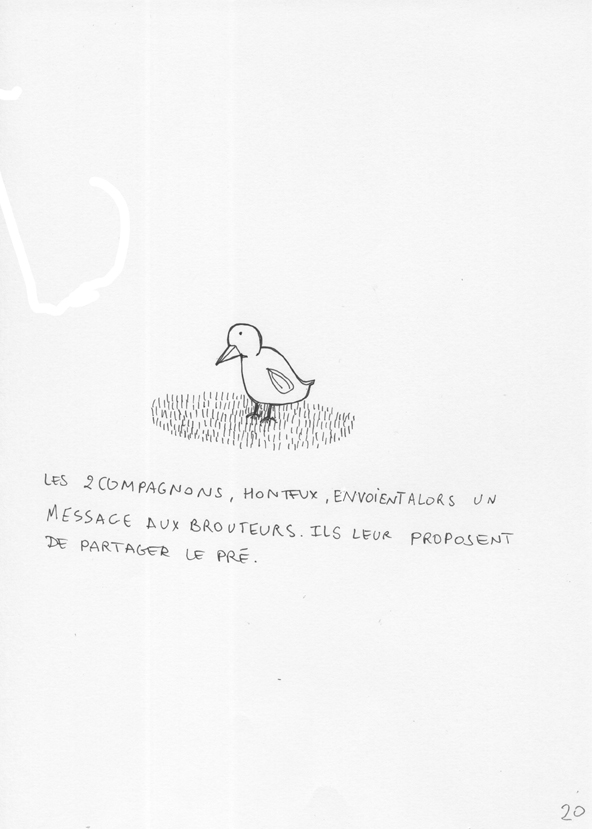 LES 2 COMPAGNONS, HONTEUX, ENVOIENT ALORS UN
MESSAGE AUX BROUTEURS. ILS LEUR PROPOSENT
DE PARTAGER LE PRÉ.
20